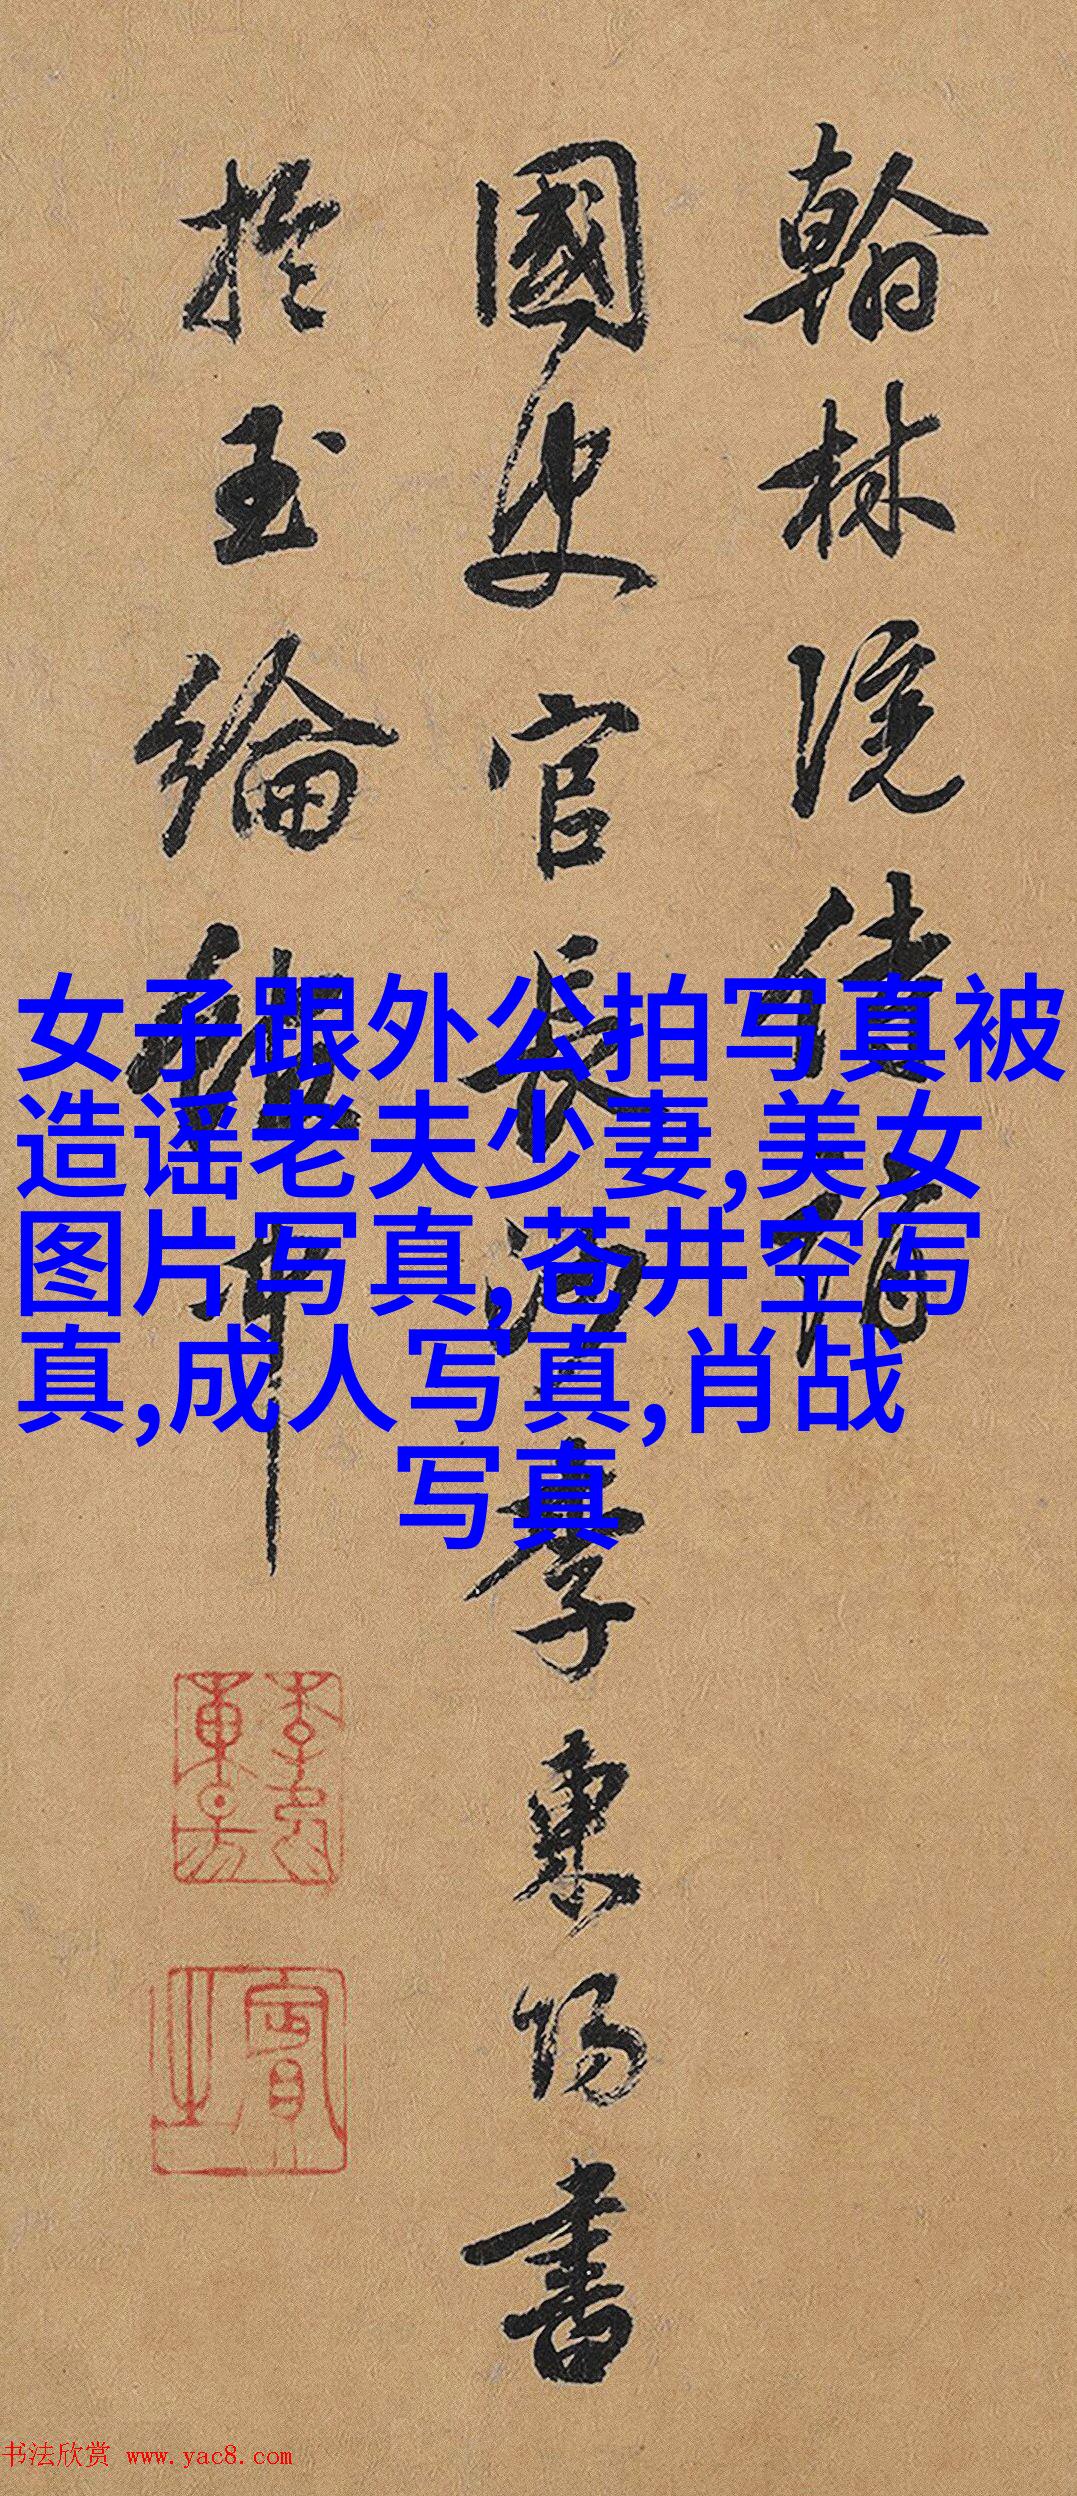 翰林院
國史官長沙李東陽書
於玉綸
賓之
女子跟外公拍写真被
造谣老夫少妻,美女
图片写真,苍井空写
真,成人写真,肖战
写真
书法欣赏 www.yac8.com